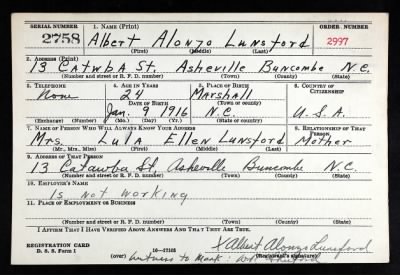 SERIAL NUMBER 1. NAME (Print) ORDER NUMBER
2758 Albert Alonzo Lunsford 2997
(First) (Middle) (Last)
2. ADDRESS (Print)
13 Catwba St. Asheville Buncombe N.C.
(Number and street or R. F. D. number) (Town) (County) (State)
3. TELEPHONE 4. AGE IN YEARS 5. PLACE OF BIRTH 6. COUNTRY OF CITIZENSHIP
None 24 Marshall
DATE OF BIRTH (Town or county)
Jan. 9 1916 N.C. U.S.A.
(Exchange) (Number) (Mo.) (Day) (Yr.) (State or country)
7. NAME OF PERSON WHO WILL ALWAYS KNOW YOUR ADDRESS 8. RELATIONSHIP OF THAT PERSON
Mrs. Lula Ellen Lunsford Mother
(Mr., Mrs., Miss) (First) (Middle) (Last)
9. ADDRESS OF THAT PERSON
13 Catawba St. Asheville Buncombe N.C.
(Number and street or R. F. D. number) (Town) (County) (State)
10. EMPLOYER'S NAME
Is not working
11. PLACE OF EMPLOYMENT OR BUSINESS
(Number and street or R. F. D. number) (Town) (County) (State)
I AFFIRM THAT I HAVE VERIFIED ABOVE ANSWERS AND THAT THEY ARE TRUE.
X Albert Alonzo Lunsford
REGISTRATION CARD
D. S. S. Form 1 16—17105 (Registrant's signature)
(over) Witness to Mark: